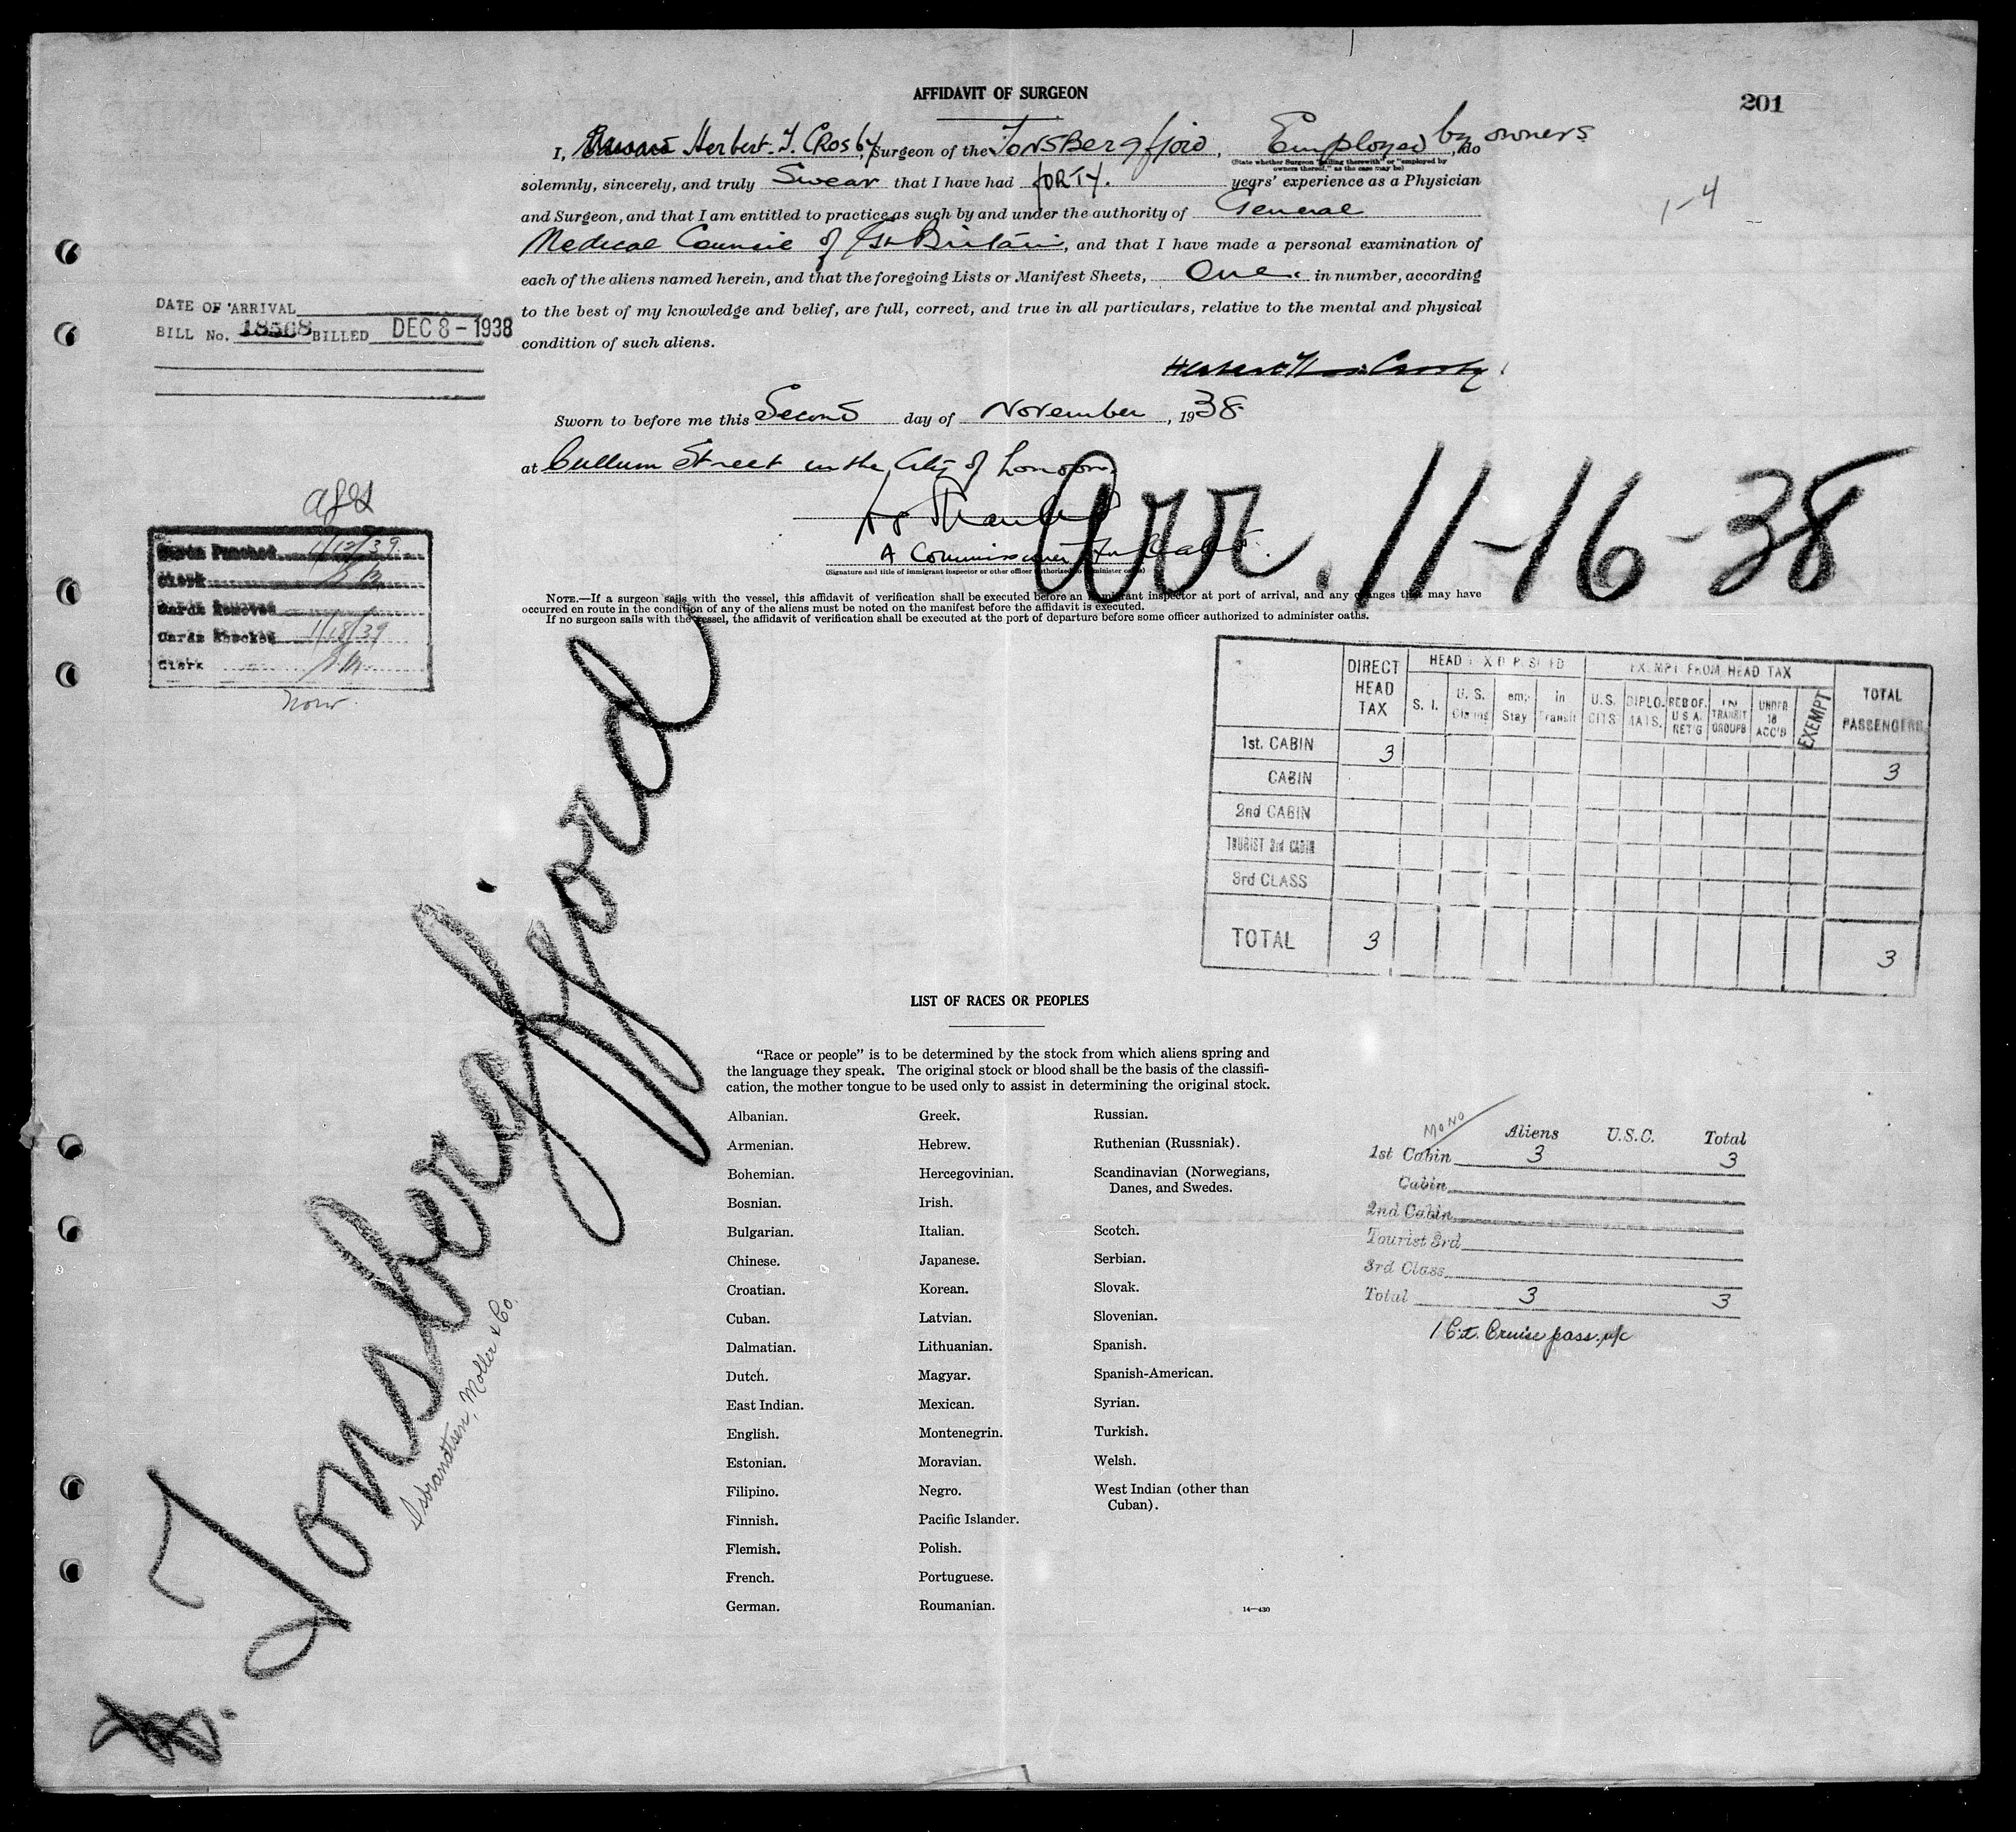 AFFIDAVIT OF SURGEON
201
I, Herbert. T. CROSBY, Surgeon of the TONSBergfjord, Employed by owners, do
(State whether Surgeon "sailing therewith" or "employed by owners thereof," as the case may be)
solemnly, sincerely, and truly Swear that I have had FORTY. years' experience as a Physician
and Surgeon, and that I am entitled to practice as such by and under the authority of General
Medical Council of Gt Britain, and that I have made a personal examination of
each of the aliens named herein, and that the foregoing Lists or Manifest Sheets, One. in number, according
to the best of my knowledge and belief, are full, correct, and true in all particulars, relative to the mental and physical
condition of such aliens.
1-4
DATE OF ARRIVAL
BILL No. 18568 BILLED DEC 8 - 1938
Sworn to before me this Second day of November, 1938
at Cullum Street in the City of London.
A Commissioner
(Signature and title of immigrant inspector or other officer authorized to administer oaths)
Arr. 11-16-38
Cards Punched 1/12/39
Clerk
Cards Removed
Cards Checked 1/18/39
Clerk
NOTE.—If a surgeon sails with the vessel, this affidavit of verification shall be executed before an immigrant inspector at port of arrival, and any changes that may have
occurred en route in the condition of any of the aliens must be noted on the manifest before the affidavit is executed.
If no surgeon sails with the vessel, the affidavit of verification shall be executed at the port of departure before some officer authorized to administer oaths.
DIRECT HEAD TAX
S. I.
U. S.
Stay
in Transit
EXEMPT FROM HEAD TAX
U.S. CITS
DIPLOMATS.
RES OF. U S A. RET'G
IN TRANSIT GROUPS
UNDER 16 ACC'D
EXEMPT
TOTAL PASSENGERS
1st. CABIN 3 3
CABIN
2nd CABIN
TOURIST 3rd CABIN
3rd CLASS
TOTAL 3 3
Tonsbergfjord
Isbrandtsen, Moller & Co.
LIST OF RACES OR PEOPLES
"Race or people" is to be determined by the stock from which aliens spring and
the language they speak. The original stock or blood shall be the basis of the classifi-
cation, the mother tongue to be used only to assist in determining the original stock.
Albanian.
Armenian.
Bohemian.
Bosnian.
Bulgarian.
Chinese.
Croatian.
Cuban.
Dalmatian.
Dutch.
East Indian.
English.
Estonian.
Filipino.
Finnish.
Flemish.
French.
German.
Greek.
Hebrew.
Hercegovinian.
Irish.
Italian.
Japanese.
Korean.
Latvian.
Lithuanian.
Magyar.
Mexican.
Montenegrin.
Moravian.
Negro.
Pacific Islander.
Polish.
Portuguese.
Roumanian.
Russian.
Ruthenian (Russniak).
Scandinavian (Norwegians,
Danes, and Swedes.
Scotch.
Serbian.
Slovak.
Slovenian.
Spanish.
Spanish-American.
Syrian.
Turkish.
Welsh.
West Indian (other than
Cuban).
14—430
MONO
Aliens U.S.C. Total
1st Cabin 3 3
Cabin
2nd Cabin
Tourist 3rd
3rd Class
Total 3 3
1 Cit. Cruise pass.